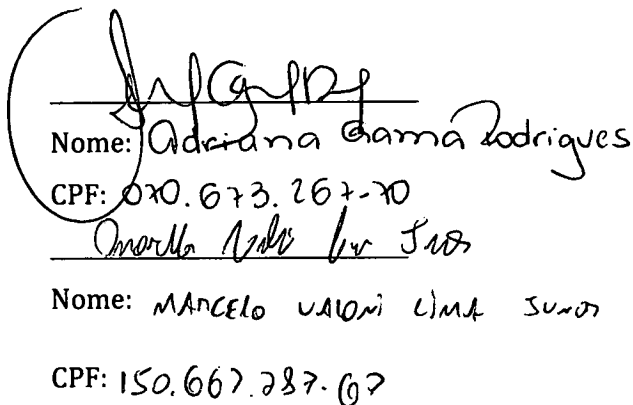 Nome: Adriana Gama Rodrigues
CPF: 070.673.267-70
Nome: MARCELO VALONI LIMA JUNIOR
CPF: 150.667.787.67